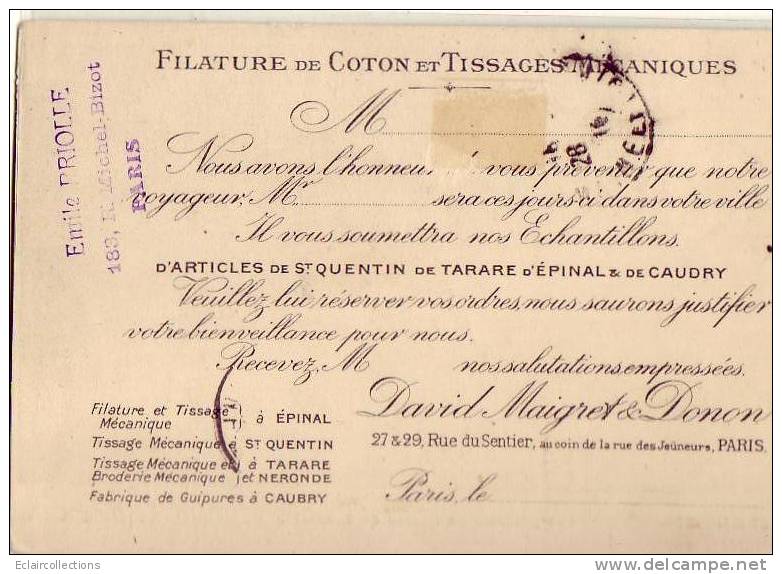 FILATURE DE COTON ET TISSAGES MÉCANIQUES
M
Nous avons l'honneur vous prévenir que notre
voyageur, Mr sera ces jours ci dans votre ville
Il vous soumettra nos Echantillons.
D'ARTICLES DE ST QUENTIN DE TARARE D'ÉPINAL & DE CAUDRY
Veuillez lui réserver vos ordres, nous saurons justifier
votre bienveillance pour nous.
Recevez, M nos salutations empressées.
David Maigret & Donon
27 & 29, Rue du Sentier, au coin de la rue des Jeûneurs, PARIS.
Paris, le
Filature et Tissage
Mécanique à ÉPINAL
Tissage Mécanique à ST QUENTIN
Tissage Mécanique et à TARARE
Broderie Mécanique et NERONDE
Fabrique de Guipures à CAUBRY
Emile PRIOLLE
183, R. Michel-Bizot
PARIS
28
Eclaircollections
delcampe.net